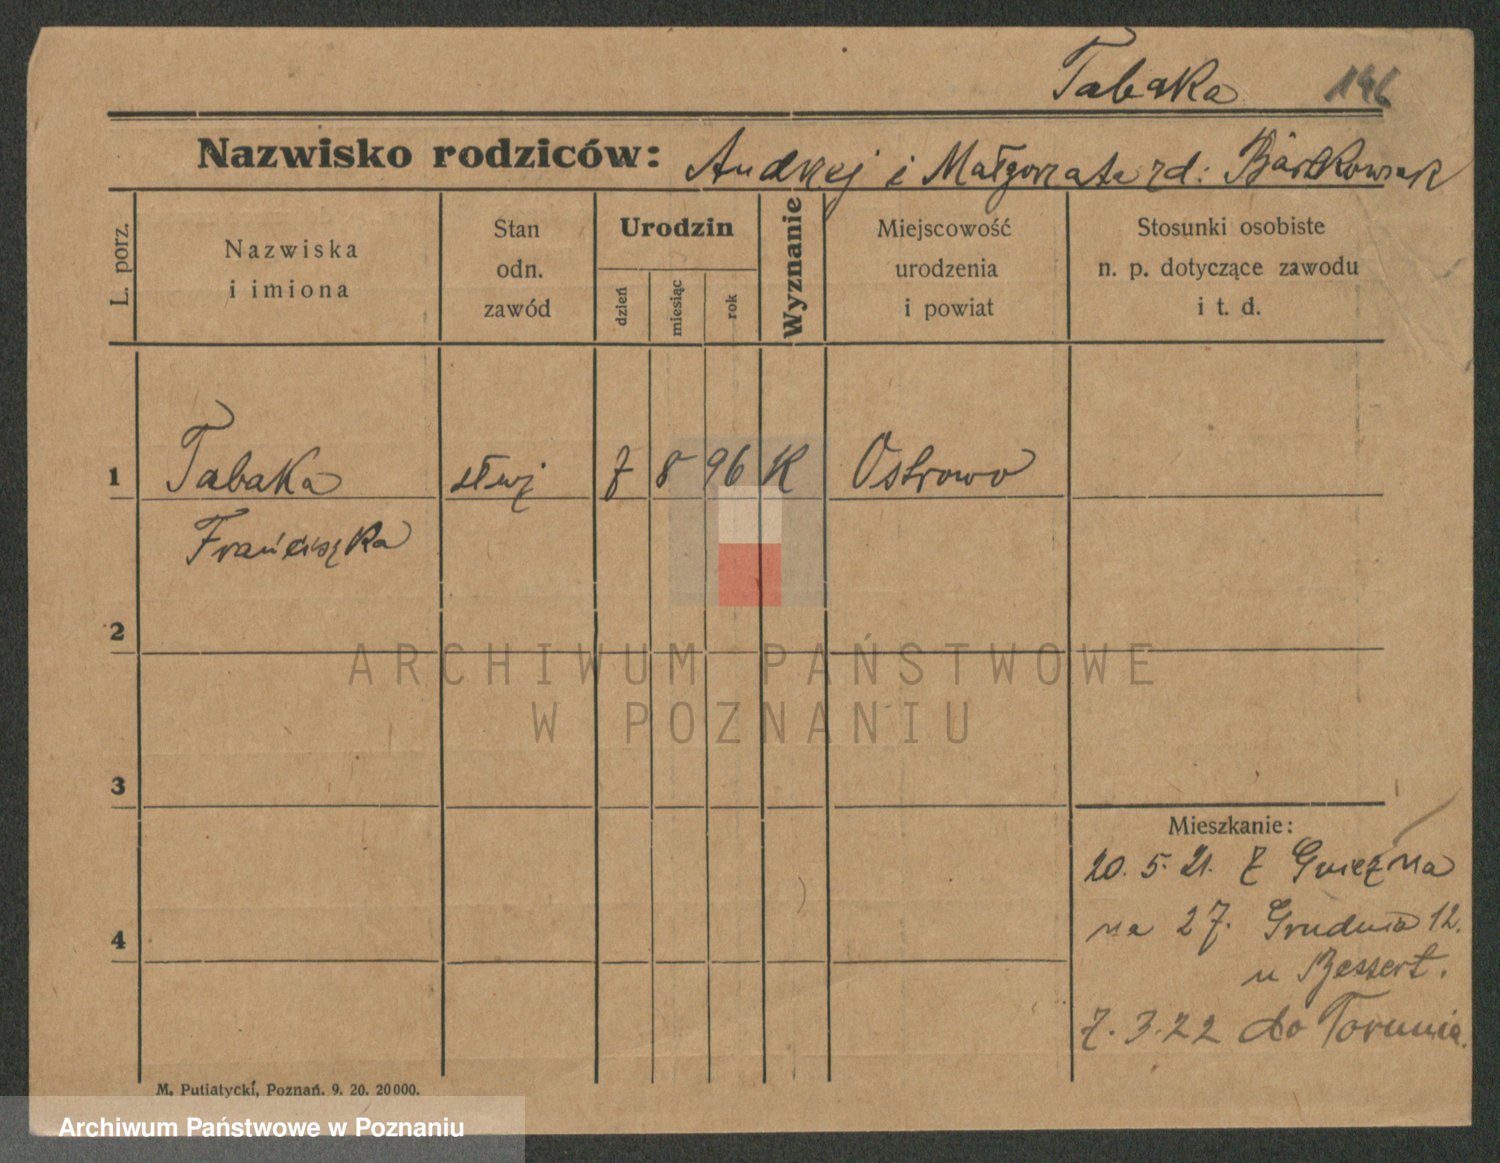 Tabaka 146
Nazwisko rodziców: Andrzej i Małgorzata rd: Bartkowiak
L. porz.
Nazwiska
i imiona
Stan
odn.
zawód
Urodzin
dzień
miesiąc
rok
Wyznanie
Miejscowość
urodzenia
i powiat
Stosunki osobiste
n. p. dotyczące zawodu
i t. d.
1 Tabaka 7 8 96 K Ostrowo
Franciszka
2
ARCHIWUM PAŃSTWOWE
W POZNANIU
3
Mieszkanie:
20. 5. 21. Z Gniezna
na 27. Grudnia 12.
4
u Bessert.
7. 3. 22 do Torunia.
M. Putiatycki, Poznań. 9. 20. 20000.
Archiwum Państwowe w Poznaniu